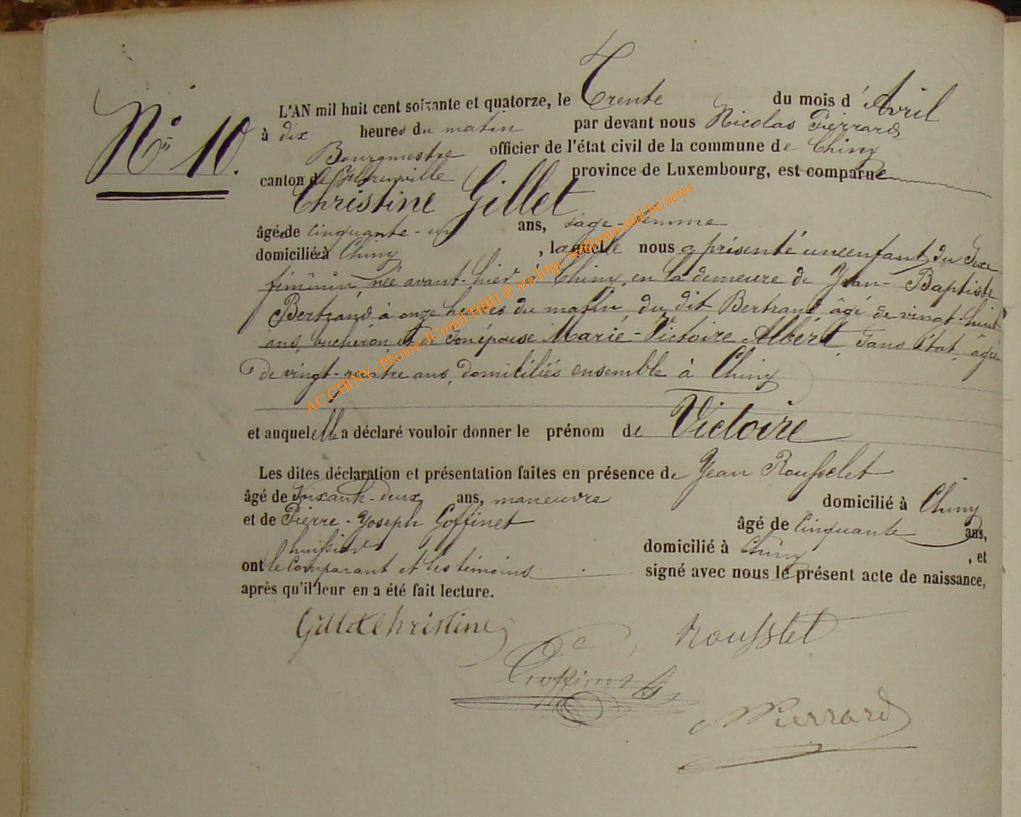 N° 10.
L'AN mil huit cent soixante et quatorze, le Trente du mois d'Avril
à dix heures du matin par devant nous Nicolas Pierrard
Bourgmestre officier de l'état civil de la commune de Chiny
canton de province de Luxembourg, est comparue
Christine Gillet
âgée de cinquante-un ans, sage-femme
domiciliée à Chiny, laquelle nous a présenté un enfant du sexe
féminin, née avant-hier à Chiny, en la demeure de Jean-Baptiste
Bertrand à onze heures du matin, du dit Bertrand, âgé de vingt-huit
ans, bucheron et de son épouse Marie-Victoire Albert, sans état, âgée
de vingt-quatre ans, domiciliés ensemble à Chiny
et auquel elle a déclaré vouloir donner le prénom de Victoire
Les dites déclaration et présentation faites en présence de Jean Rousselet
âgé de soixante-deux ans, maneuvre domicilié à Chiny
et de Pierre-Joseph Goffinet âgé de cinquante ans,
huissier domicilié à Chiny, et
ont le comparant et les témoins signé avec nous le présent acte de naissance,
après qu'il leur en a été fait lecture.
Gillet Christine Rousslet
Goffinet
N Pierrard
AC CHINY - Photos